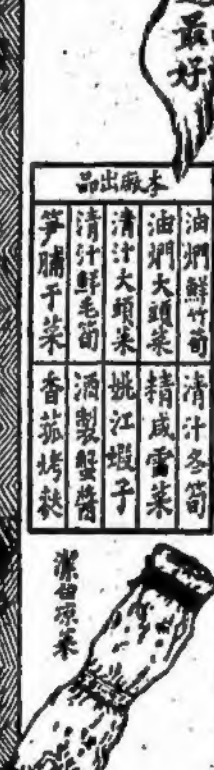 最好
本廠出品
油燜鮮竹筍
油燜大頭菜
清汁大頭菜
清汁鮮毛筍
筍脯干菜
清汁冬筍
精咸雪菜
姚江蝦子
酒製蟹醬
香菰烤麩
潔白凉菜